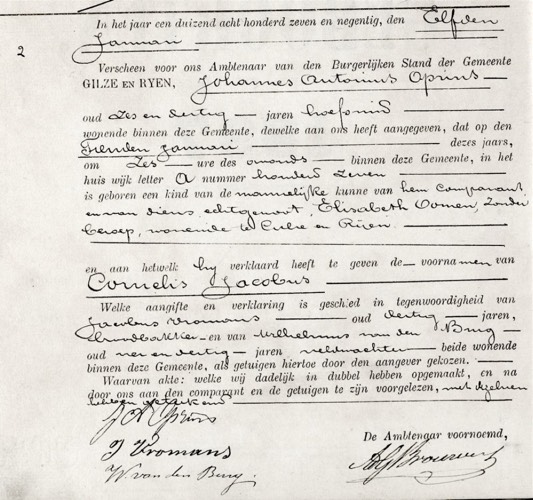 In het jaar een duizend acht honderd zeven en negentig, den Elfden
Januari
2
Verscheen voor ons Ambtenaar van den Burgerlijken Stand der Gemeente
GILZE EN RYEN, Johannes Antonius Oprins
oud zes en dertig jaren hoefsmid
wonende binnen deze Gemeente, dewelke aan ons heeft aangegeven, dat op den
Tienden Januari dezes jaars,
om zes ure des avonds binnen deze Gemeente, in het
huis wijk letter A nummer honderd zeven
is geboren een kind van de mannelijke kunne van hem Comparant,
en van diens echtgenoot, Elisabeth Oomen, zonder
beroep, wonende te Gilze en Rijen.
en aan hetwelk hij verklaard heeft te geven de voornamen van
Cornelis Jacobus
Welke aangifte en verklaring is geschied in tegenwoordigheid van
Jacobus Vromans oud dertig jaren,
en van Wilhelmus van den Burg
oud en dertig jaren veldwachter beide wonende
binnen deze Gemeente, als getuigen hiertoe door den aangever gekozen.
Waarvan akte: welke wij dadelijk in dubbel hebben opgemaakt, en na
door ons aan den comparant en de getuigen te zijn voorgelezen, met dezelven
hebben geteekend
J A Oprins
J Vromans
W. van den Burg.
De Ambtenaar voornoemd,